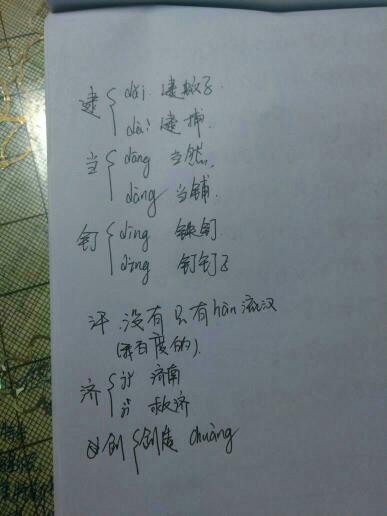 逮 dǎi 逮蚊子
dài 逮捕
当 dāng 当然
dàng 当铺
钉 dīng 铁钉
dìng 钉钉子
汗 没有只有hàn 流汗
(我百度的).
济 jǐ 济南
jì 救济
创 创造 chuàng